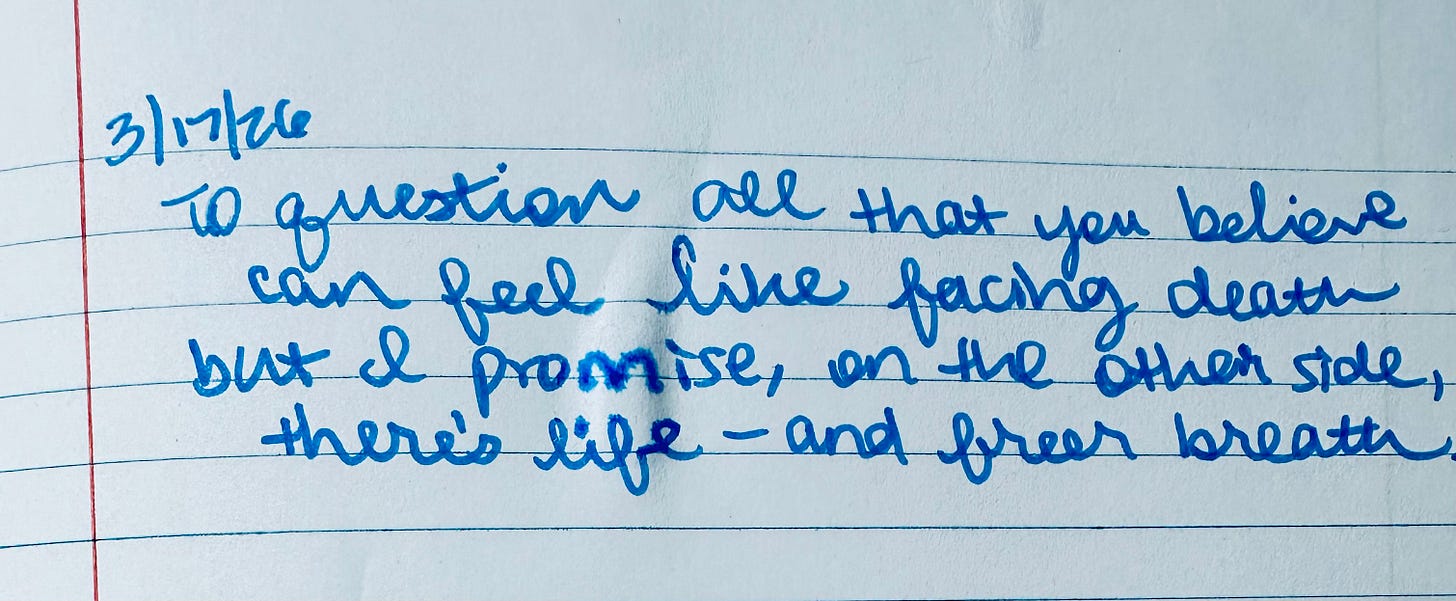 3/17/26
To question all that you believe
can feel like facing death
but I promise, on the other side,
there's life – and freer breath.